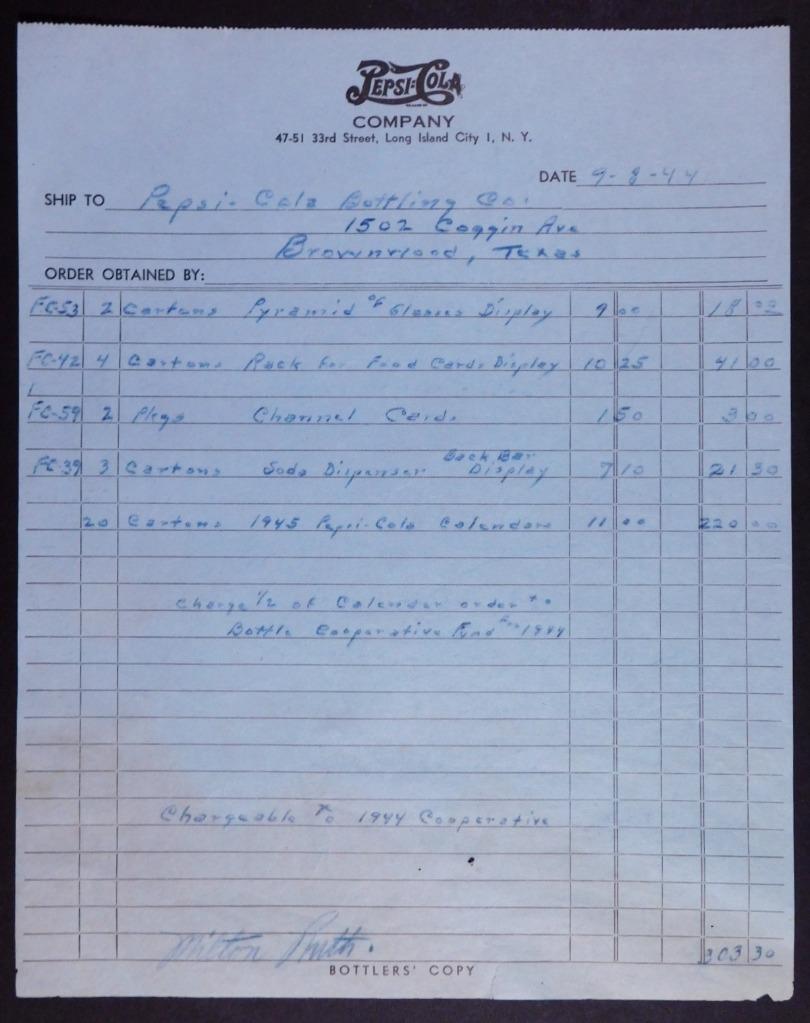 PEPSI-COLA
COMPANY
47-51 33rd Street, Long Island City 1, N. Y.
DATE 9-8-44
SHIP TO Pepsi-Cola Bottling Co.
1502 Coggin Ave
Brownwood, Texas
ORDER OBTAINED BY:
FC-53 2 Cartons Pyramid of Glasses Display 9 00 18 00
FC-42 4 Cartons Rack for Food Cards Display 10 25 41 00
FC-59 2 Pkgs Channel Cards 1 50 3 00
FC-39 3 Cartons Soda Dispenser Back Bar Display 7 10 21 30
20 Cartons 1945 Pepsi-Cola Calendars 11 00 220 00
Charge 1/2 of Calendar order to
Bottle Cooperative Fund for 1944
Chargeable to 1944 Cooperative
Milton
303 30
BOTTLERS' COPY